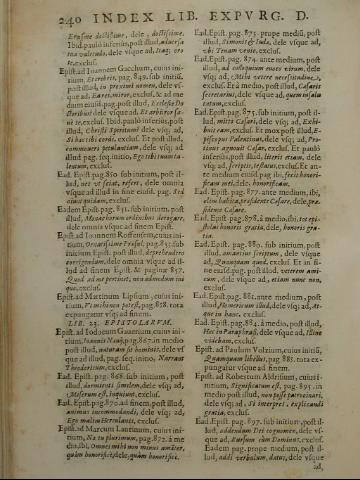 240 INDEX LIB. EXPVRG. D.
Erasme doctissime, dele, doctissime.
Ibid. paulò inferius, post illud, aduersa
tua valetudo, dele vsque ad, Itaq; ero
te. exclus.
Epist. ad Ioannem Gacchum, cuius ini-
tium, Et crebris, pag. 849. sub initiū,
post illud, in proximi nomen, dele vs-
que ad, Easet, miror, exclus. & ad me
dium eiusd. pag. post illud, Ecclesiæ Do
ctoribus dele vsque ad, Et arbitror sa-
nè te, exclus. Ibid. paulò inferius, post
illud, Christi spiritum dele vsq; ad,
Si bacchi cordi, exclus. Et post illud,
commoueri petulantiam, dele vsq; ad
illud pag. seq. initio, Ego tibi tuum ta-
lentum, exclus.
Ead. Epist. pag. 850. sub initium, post il-
lud, nec vt sciat, refert, dele omnia
vsque ad illud in fine eiusd. pag. Sed
aius quidam, exclus.
Eadem Epist. pag. 851. sub initium, post
illud, Monachorum ordinibus derogare,
dele omnia vsque ad finem Epist.
Epist. ad Ioannem Roffensem, cuius ini-
tium, Ornatissime Præsul, pag. 853. sub
initium post illud, deprehendero
corrigendum, dele omnia vsque ad il-
lud ad finem Epist. & paginæ 857.
Quod ad me pertinet, neu admodum ini
què, exclus.
Epist. ad Martinum Lipsium, cuius ini-
tium, Vt nihilum patet, pag. 858. tota
expungatur vsq; ad finem.
LIB. 23. EPISTOLARVM.
Epist. ad Iodocum Gauerium, cuius ini-
tium, Ioannis Næuij, pag. 867. in medio
post illud, naturam sit hominis, dele vs
que ad illud, pag. seq. initio, Narrant
Theodericum, exclus.
Ead. Epist. pag. 868. sub initium, post
illud, dormienti similem, dele vsq; ad,
Miserum est, inquiunt, exclus.
Ead. Epist. pag. 870. ad finem, post illud,
animus incommodandi, dele vsq; ad,
Ego malim Herculanes, exclus.
Epist. ad Marcum Laurinum, cuius ini-
tium, Na tu plurimum, pag. 872. à me
dio ibi, Omnes mihi non minus amāter,
quàm honorificè, dele, quàm honorificè.
Ead. Epist. pag. 873. prope mediū, post
illud, Simonis & Iudæ, dele vsque ad,
ubi Tenam venio, exclus.
Ead. Epist. pag. 874. ante medium, post
illud, ad colloquium meæ virum, dele
vsq; ad, Mihi vetere necessitudine,
exclus. Et à medio, post illud, Cæsaris
secretarius, dele vsque ad, quem insalu
tatum, exclus.
Ead. Epist. pag. 875. sub initium, post il-
lud, mitra Cæsari, dele vsq; ad, Exhi-
buit eam, exclus. Et mox post illud, E-
piscopus Palentinus, dele vsq; ad, Pro-
tinus agnouit Cæsar, exclus. Et paulò
inferius, post illud, literis etiam, dele
vsq; ad, scripsit, testatus, exclus. Et an-
te medium eiusd. pag. ibi, fecit honori-
ficam mei, dele, honorificam.
Ead. Epist. pag. 877. ante medium, ibi,
eleuabatur, præsidente Cæsare, dele, præ-
sidente Cæsare.
Ead. Epist. pag. 878. à medio, ibi, tot epi-
stolas honoris gratia, dele, honoris gra-
tia.
Ead. Epist. pag. 880. sub initium, post
illud, nuntius scriptum, dele vsque
ad, quamquam apud, exclus. Et in fi-
ne eiusd. pag. post illud, veterem ami-
cum, dele vsque ad, etiam nunc non,
exclus.
Ead. Epist. pag. 881. ante medium, post
illud, Homericum illud, dele vsq; ad, At-
que in hunc, exclus.
Ead. Epist. pag. 884. à medio, post illud,
Hoc in Paraphrasi, dele vsque ad, Illud
videbam, exclus.
Epist. ad Paulum Volzium, cuius initiū,
Quamquam libellus, pag. 885. tota ex-
pungatur vsque ad finem.
Epist. ad Robertum Aldrisium, cuius i-
nitium, Significatum est, pag. 895. in
medio post illud, non posse patrocinari,
dele vsq; ad, Si interpret. explicandi
gratia, exclus.
Ead. Epist. pag. 897. sub initium, post
illud, adderdum Dei cognomen, dele vs
que ad, Rursum cum Dominus, exclus.
Eadem pag. prope medium, post il-
lud, addi verbulum, datus, dele vsque
ad,